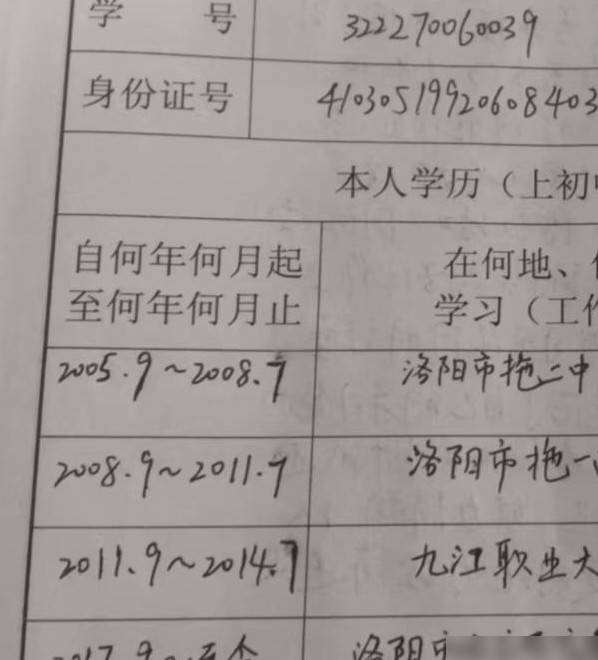 学 号 322270060039
身份证号 41030519920608403
本人学历（上初
自何年何月起
至何年何月止
在何地、
学习（工作
2005.9～2008.7 洛阳市拖二中
2008.9～2011.7 洛阳市拖一
2011.9～2014.7 九江职业大
2017.9 至今 洛阳市